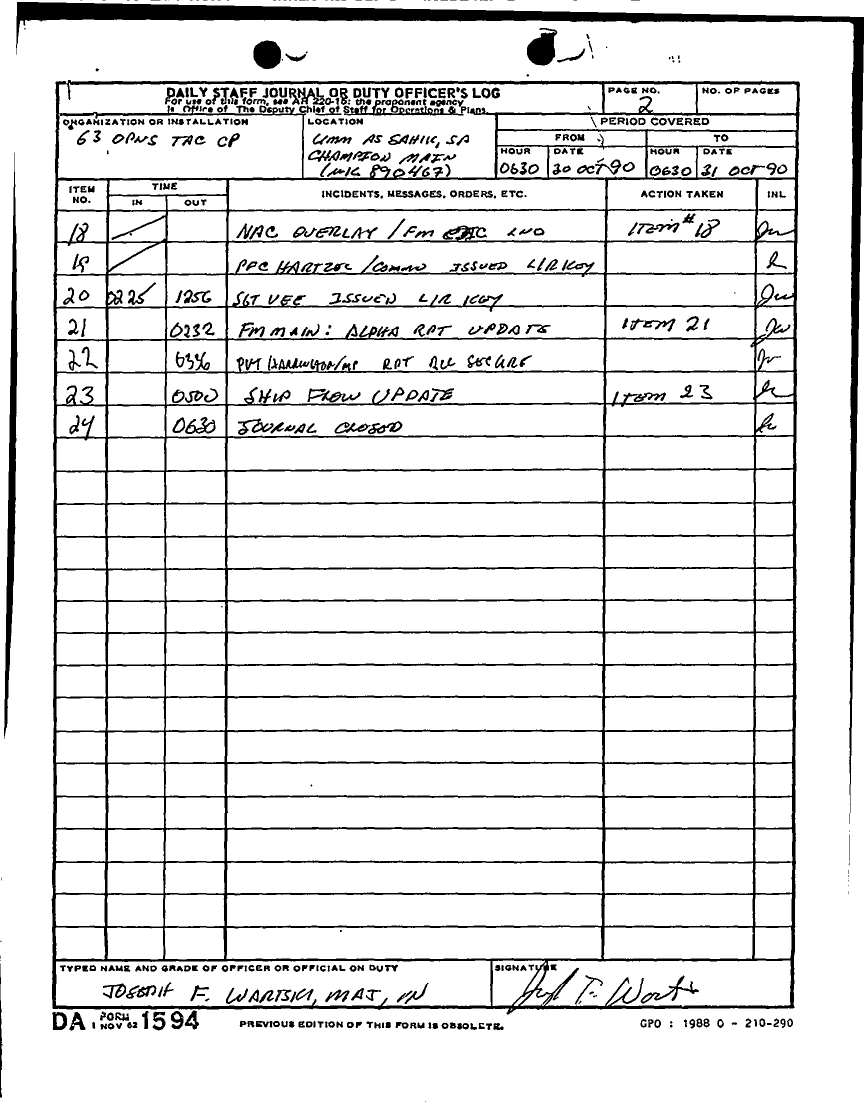 DAILY STAFF JOURNAL OR DUTY OFFICER'S LOG
For use of this form, see AR 220-15; the proponent agency
is Office of The Deputy Chief of Staff for Operations & Plans.
PAGE NO.
2
NO. OF PAGES
ORGANIZATION OR INSTALLATION
63 OPNS TAC CP
LOCATION
UMM AS SAHIK, SA
CHAMPION MAIN
890467)
PERIOD COVERED
FROM
TO
HOUR DATE HOUR DATE
0630 30 OCT 90 0630 31 OCT 90
ITEM NO.
TIME
IN OUT
INCIDENTS, MESSAGES, ORDERS, ETC.
ACTION TAKEN
INL
18 NAC OVERLAY / FM LNO ITEM #18
19 HARTZOC / COMMO ISSUED
20 0225 1256 SGT VEE ISSUED
21 0232 FM MAIN: ALPHA RPT UPDATE ITEM 21
22 PVT RPT ALL SECURE
23 0500 SHIP FLOW UPDATE ITEM 23
24 0630 JOURNAL CLOSED
TYPED NAME AND GRADE OF OFFICER OR OFFICIAL ON DUTY
JOSEPH F. MAJ, IN
SIGNATURE
DA FORM 1 NOV 62 1594
PREVIOUS EDITION OF THIS FORM IS OBSOLETE.
GPO : 1988 O - 210-290